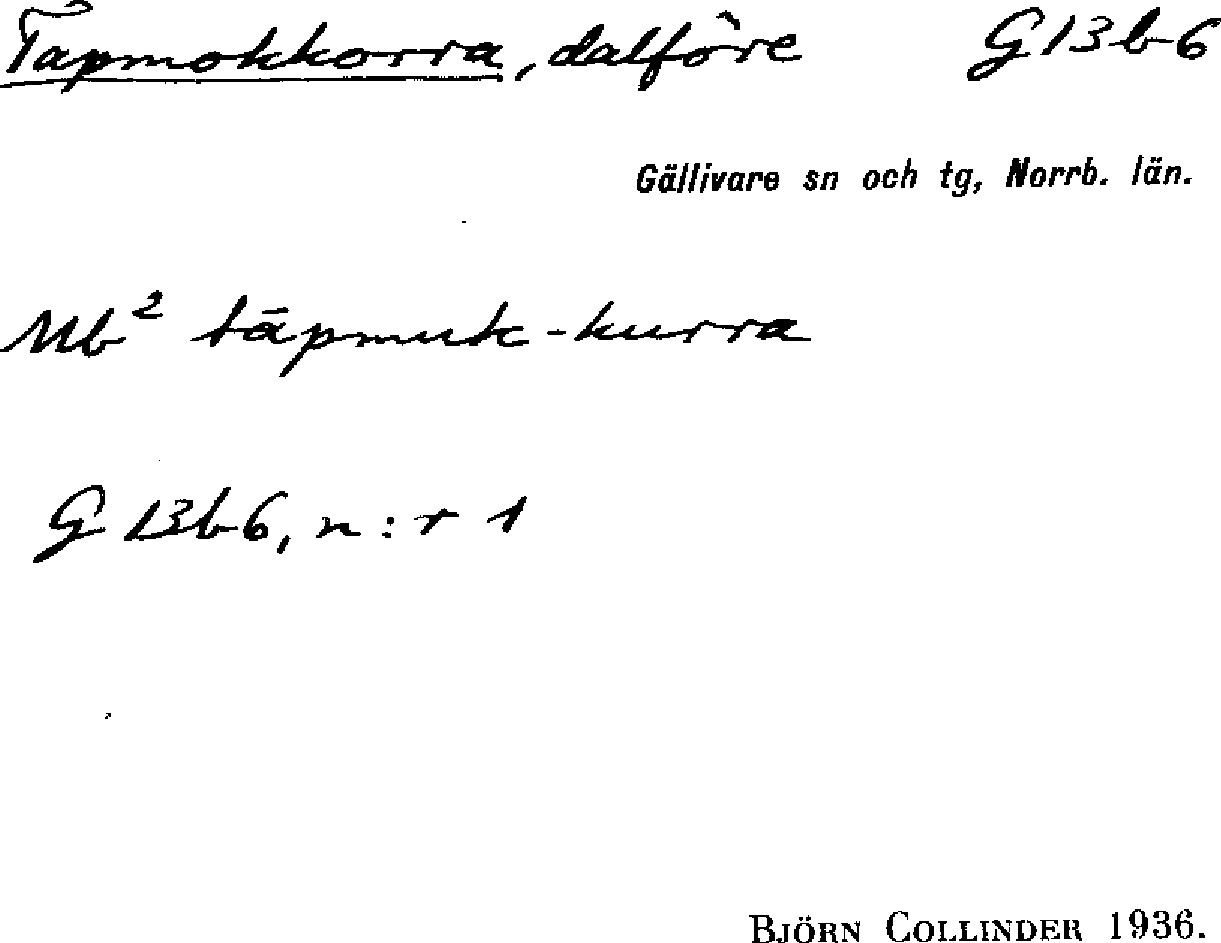 Tapmokkorra, dalföre G13b6
Gällivare sn och tg, Norrb. län.
Mb² tāpmuk-kurra
G 13b6, n:r 1
BJÖRN COLLINDER 1936.